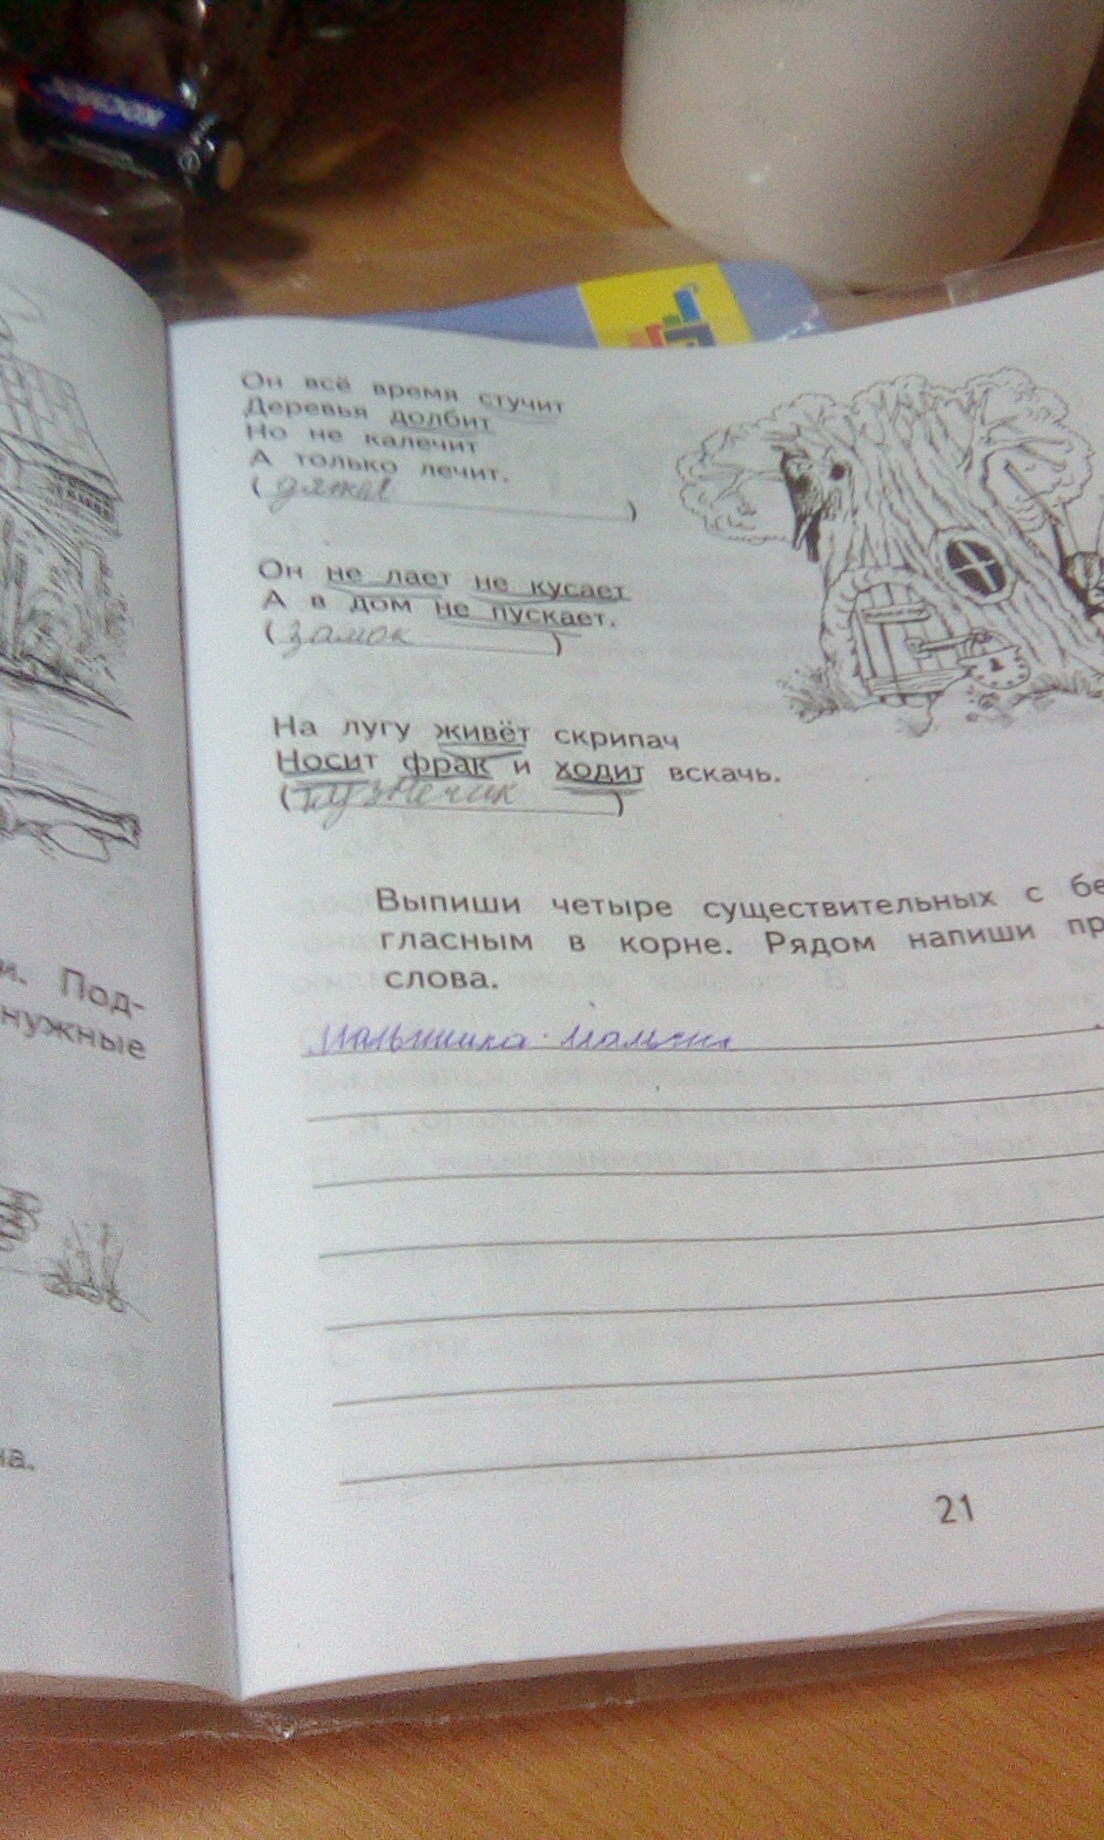 КОСМОС
Он всё время стучит
Деревья долбит
Но не калечит
А только лечит.
( дятел )
Он не лает не кусает
А в дом не пускает.
( замок )
На лугу живёт скрипач
Носит фрак и ходит вскачь.
( кузнечик )
и. Под-
нужные
на.
Выпиши четыре существительных с бе
гласным в корне. Рядом напиши пр
слова.
21